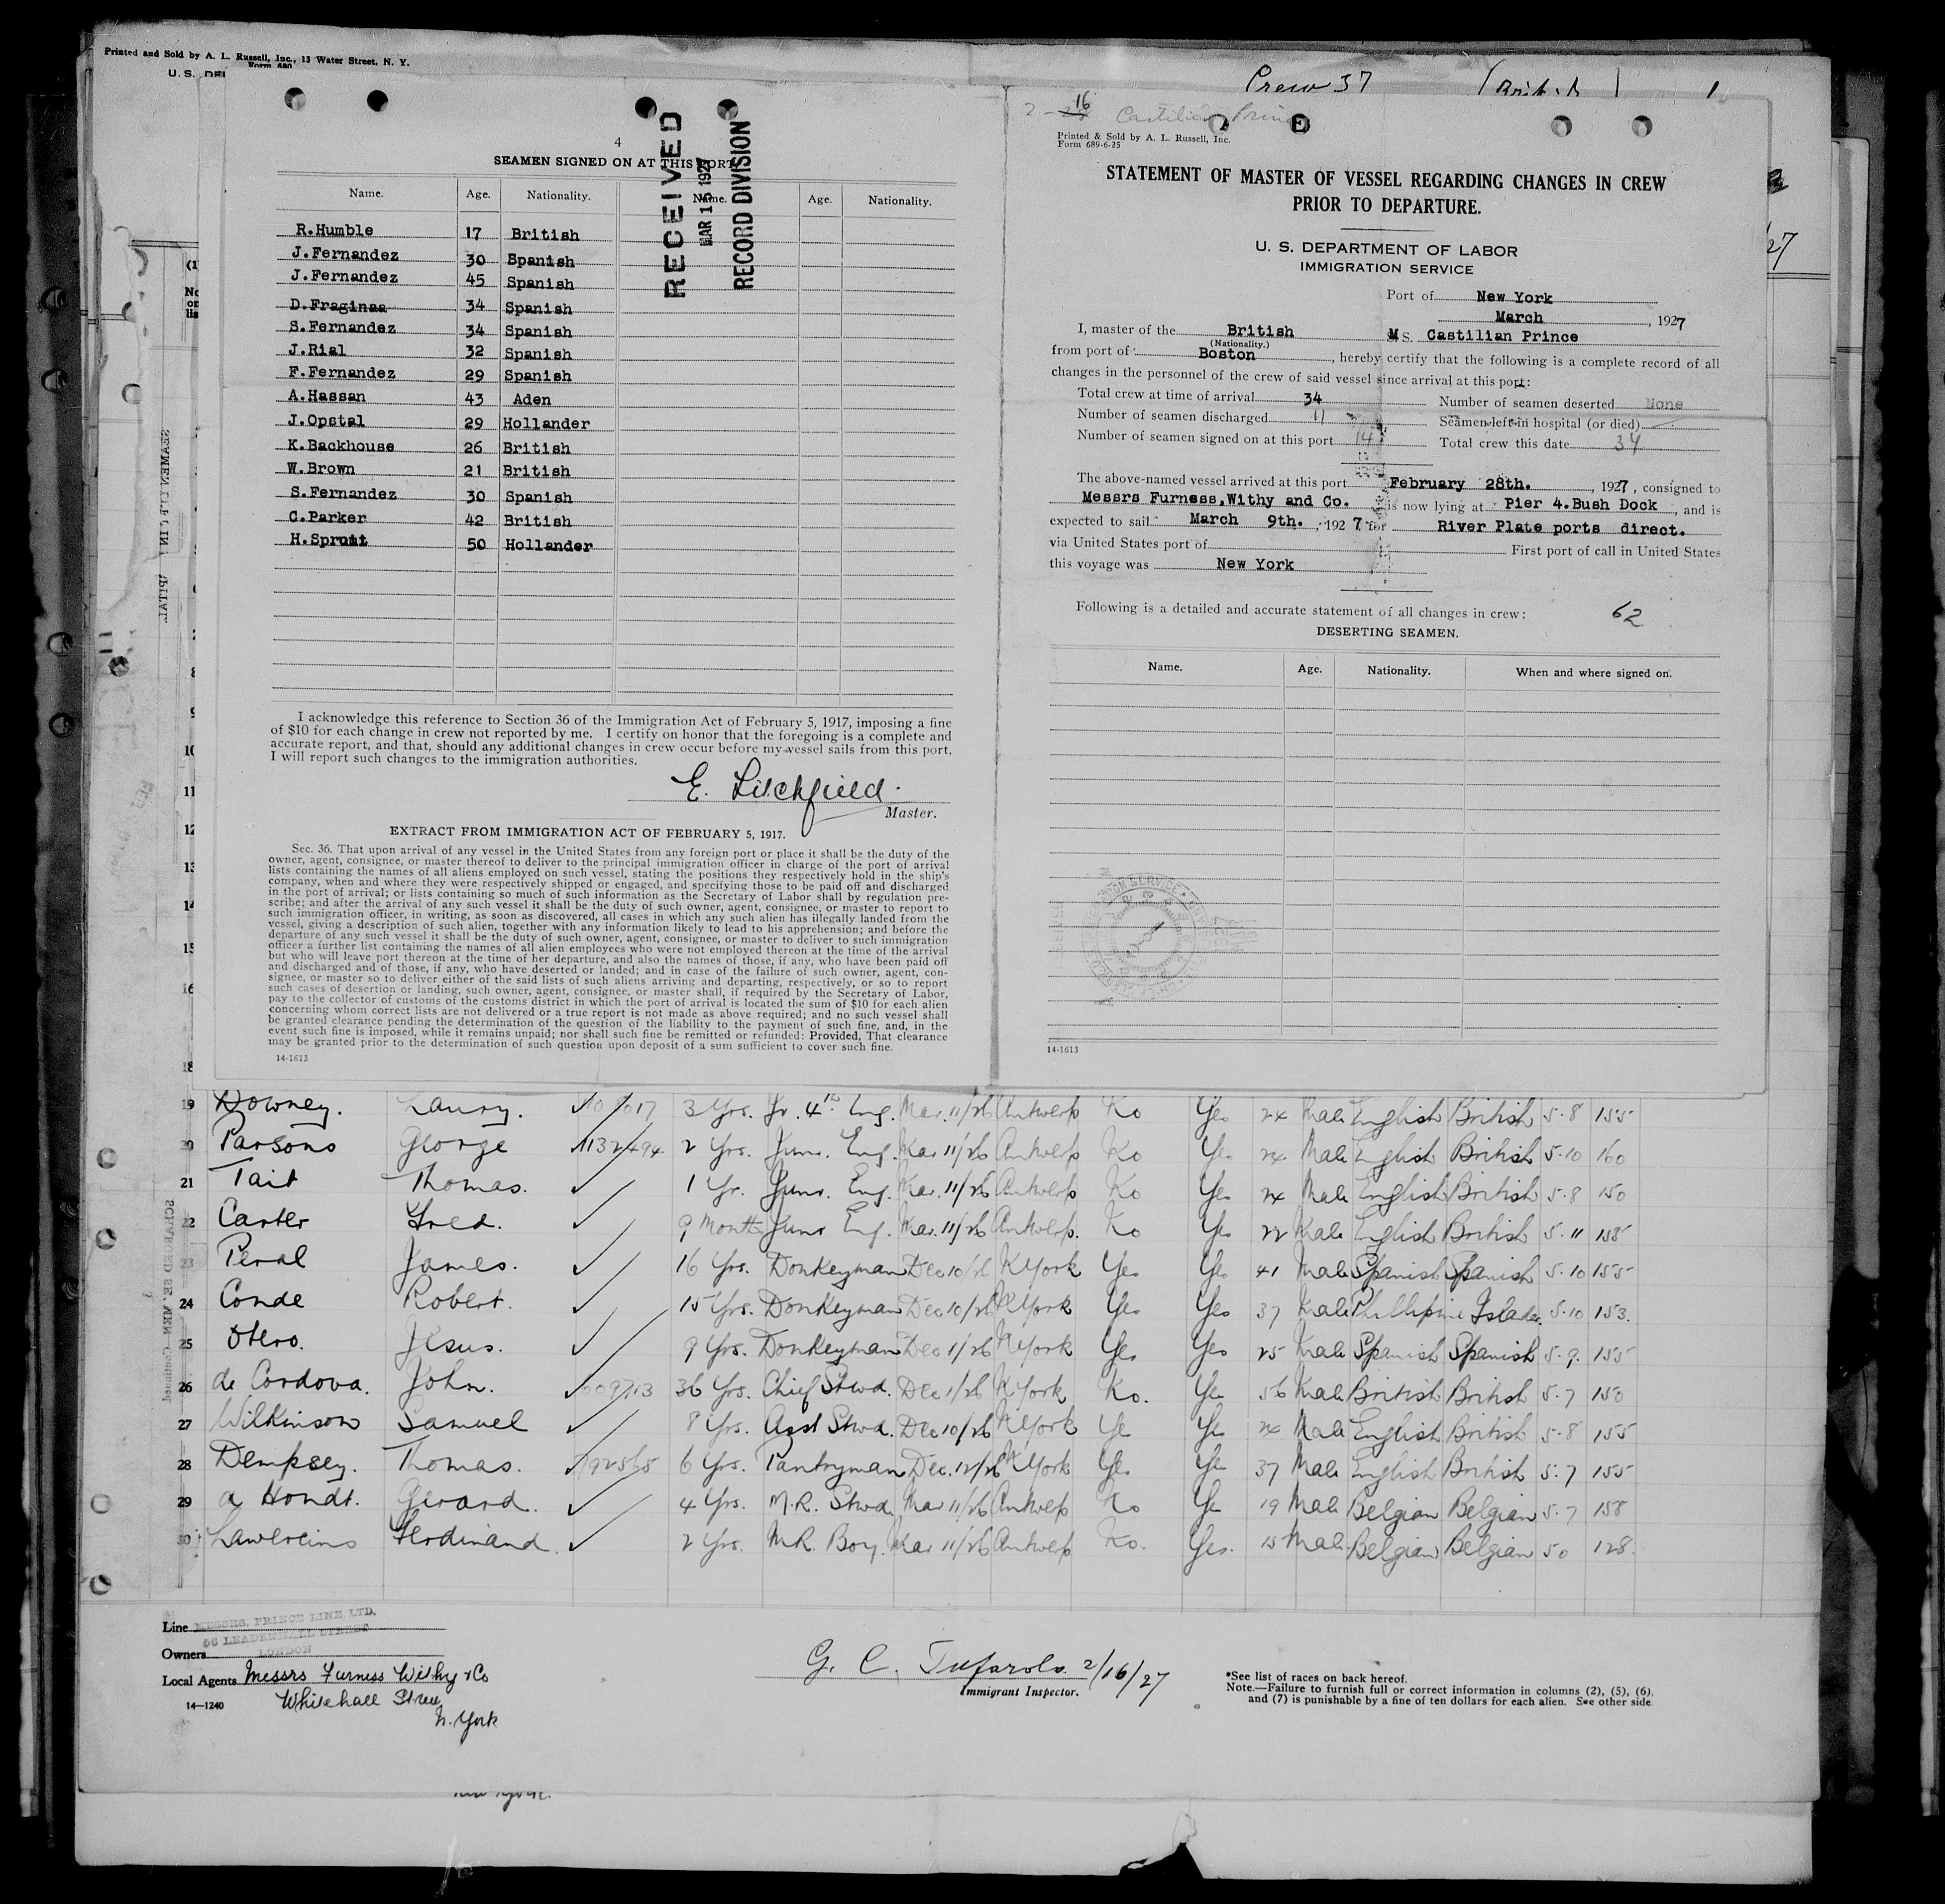 Printed and Sold by A. L. Russell, Inc., 13 Water Street, N. Y.
Form 680
U. S. DEP
Crew 37 (British) 1
4
SEAMEN SIGNED ON AT THIS PORT
RECEIVED
MAR 15 1927
RECORD DIVISION
Name. Age. Nationality. Name. Age. Nationality.
R.Humble 17 British
J.Fernandez 30 Spanish
J.Fernandez 45 Spanish
D.Fraginas 34 Spanish
S.Fernandez 34 Spanish
J.Rial 32 Spanish
F.Fernandez 29 Spanish
A.Hassan 43 Aden
J.Opstal 29 Hollander
K.Backhouse 26 British
W.Brown 21 British
S.Fernandez 30 Spanish
C.Parker 42 British
H.Spruit 50 Hollander
I acknowledge this reference to Section 36 of the Immigration Act of February 5, 1917, imposing a fine
of $10 for each change in crew not reported by me. I certify on honor that the foregoing is a complete and
accurate report, and that, should any additional changes in crew occur before my vessel sails from this port,
I will report such changes to the immigration authorities.
E. Litchfield.
Master.
EXTRACT FROM IMMIGRATION ACT OF FEBRUARY 5, 1917.
Sec. 36. That upon arrival of any vessel in the United States from any foreign port or place it shall be the duty of the
owner, agent, consignee, or master thereof to deliver to the principal immigration officer in charge of the port of arrival
lists containing the names of all aliens employed on such vessel, stating the positions they respectively hold in the ship's
company, when and where they were respectively shipped or engaged, and specifying those to be paid off and discharged
in the port of arrival; or lists containing so much of such information as the Secretary of Labor shall by regulation pre-
scribe; and after the arrival of any such vessel it shall be the duty of such owner, agent, consignee, or master to report to
such immigration officer, in writing, as soon as discovered, all cases in which any such alien has illegally landed from the
vessel, giving a description of such alien, together with any information likely to lead to his apprehension; and before the
departure of any such vessel it shall be the duty of such owner, agent, consignee, or master to deliver to such immigration
officer a further list containing the names of all alien employees who were not employed thereon at the time of the arrival
but who will leave port thereon at the time of her departure, and also the names of those, if any, who have been paid off
and discharged and of those, if any, who have deserted or landed; and in case of the failure of such owner, agent, con-
signee, or master so to deliver either of the said lists of such aliens arriving and departing, respectively, or so to report
such cases of desertion or landing, such owner, agent, consignee, or master shall, if required by the Secretary of Labor,
pay to the collector of customs of the customs district in which the port of arrival is located the sum of $10 for each alien
concerning whom correct lists are not delivered or a true report is not made as above required; and no such vessel shall
be granted clearance pending the determination of the question of the liability to the payment of such fine, and, in the
event such fine is imposed, while it remains unpaid; nor shall such fine be remitted or refunded: Provided, That clearance
may be granted prior to the determination of such question upon deposit of a sum sufficient to cover such fine.
14-1613
16
Castilian Prince
Printed & Sold by A. L. Russell, Inc.
Form 689-6-25
STATEMENT OF MASTER OF VESSEL REGARDING CHANGES IN CREW
PRIOR TO DEPARTURE.
U. S. DEPARTMENT OF LABOR
IMMIGRATION SERVICE
Port of New York
March , 1927
I, master of the British M S. Castilian Prince
(Nationality.)
from port of Boston , hereby certify that the following is a complete record of all
changes in the personnel of the crew of said vessel since arrival at this port:
Total crew at time of arrival 34 Number of seamen deserted None
Number of seamen discharged 11 Seamen left in hospital (or died)
Number of seamen signed on at this port 14 Total crew this date 34
The above-named vessel arrived at this port February 28th. , 1927, consigned to
Messrs Furness,Withy and Co. is now lying at Pier 4.Bush Dock , and is
expected to sail March 9th. , 1927 for River Plate ports direct.
via United States port of First port of call in United States
this voyage was New York
Following is a detailed and accurate statement of all changes in crew: 62
DESERTING SEAMEN.
Name. Age. Nationality. When and where signed on.
14-1613
19 Downey. Laury. 3 Yrs. Jr. 4th Eng. Mar. 11/26 Antwerp No Yes 24 Male English British 5-8 155
20 Parsons George 1132494 2 Yrs. Junr. Eng. Mar 11/26 Antwerp No Yes 24 Male English British 5-10 160
21 Tait Thomas. 1 Yr. Junr. Eng. Mar. 11/26 Antwerp No Yes 24 Male English British 5-8 150
22 Carter Fred. 9 Months Junr Eng. Mar. 11/26 Antwerp. No Yes 22 Male English British 5-11 158
23 Peral James. 16 Yrs. Donkeyman Dec 10/26 N York Yes Yes 41 Male Spanish Spanish 5-10 155
24 Conde Robert. 15 Yrs. Donkeyman Dec 10/26 N York Yes Yes 37 Male Phillipine Islander 5-10 153.
25 Otero. Jesus. 9 Yrs. Donkeyman Dec 1/26 N York Yes Yes 25 Male Spanish Spanish 5-9. 155
26 de Cordova. John. 36 Yrs. Chief Stwd. Dec 1/26 N York No. Yes 56 Male British British 5-7 150
27 Wilkinson Samuel 8 Yrs. Asst Stwd. Dec 10/26 N York Ye Yes 24 Male English British 5-8 155
28 Dempsey. Thomas. 6 Yrs. Pantryman Dec. 12/26 N York Yes Yes 37 Male English British 5-7 155
29 a Hondt. Gerard. 4 Yrs. M.R. Stwd. Mar 11/26 Antwerp No Ye 19 Male Belgian Belgian 5-7 158
30 Lawereins Ferdinand. 2 Yrs. M.R. Boy. Mar 11/26 Antwerp No. Yes. 15 Male Belgian Belgian 50 128
Line MESSRS. PRINCE LINE, LTD.
56 LEADENHALL STREET
Owners LONDON
Local Agents Messrs Furness Withy & Co
14—1240 Whitehall Street
N. York
G. C. Tufarolo. 2/16/27
Immigrant Inspector.
*See list of races on back hereof.
Note.—Failure to furnish full or correct information in columns (2), (5), (6),
and (7) is punishable by a fine of ten dollars for each alien. See other side.
New York.